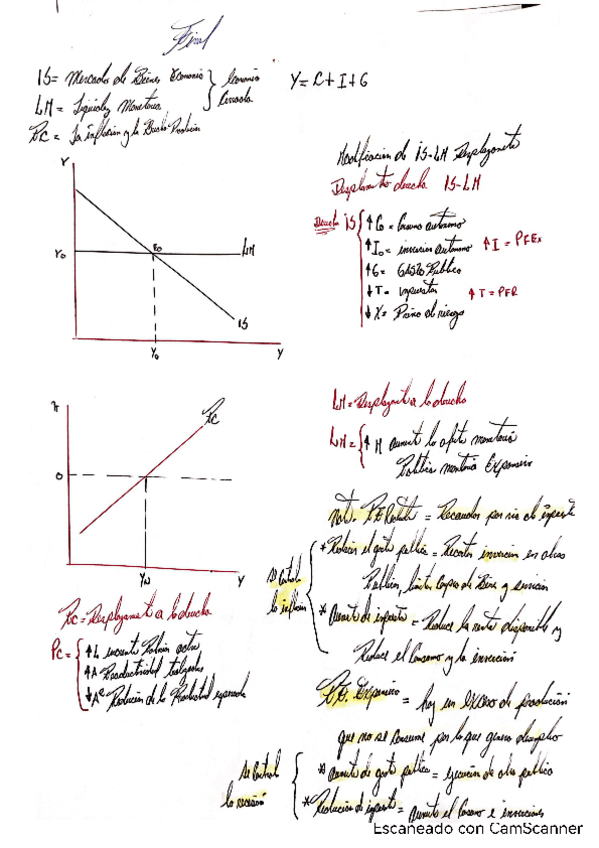 Final
IS = Mercado de Bienes Economía } Economía
LM = Liquidez Monetaria } Cerrada
PC = La inflación y la
Y = C + I + G
Modificacion de IS-LM Desplazamiento
Desplazamiento derecha IS-LM
Y
Yo
Eo
LM
IS
Yo
Y
Derecha IS
↑Co = Consumo autonomo
↑Io = inversion autonomo ↑I = PFEx
↑G = Gasto Publico
↓T = impuestos ↑T = PFR
↓X = Prima de riesgo
π
PC
0
YN
Y
LM = Desplazamiento a la derecha
LM = ↑M aumento la oferta monetaria
Política monetaria Expansiva
PC = Desplazamiento a la derecha
PC = ↑L
↑A Productividad
↓Ae Reducción de la Productividad esperada
Not. = Recaudar por via de impuesto
Se Controla la inflacion
* Reducir el gasto publico = Recortar inversion en obras
Publicas, limitar compras de Bienes y servicios
* Aumento de impuesto = Reduce la renta disponible y
Reduce el Consumo y la inversión
Expansiva = hay un exceso de producción
que no se Consume por lo que genera desempleo
Se Controla la recesión
* Aumento de gasto publico = ejecución de obra publica
* Reduccion de impuesto = aumento el Consumo e inversiones
Escaneado con CamScanner